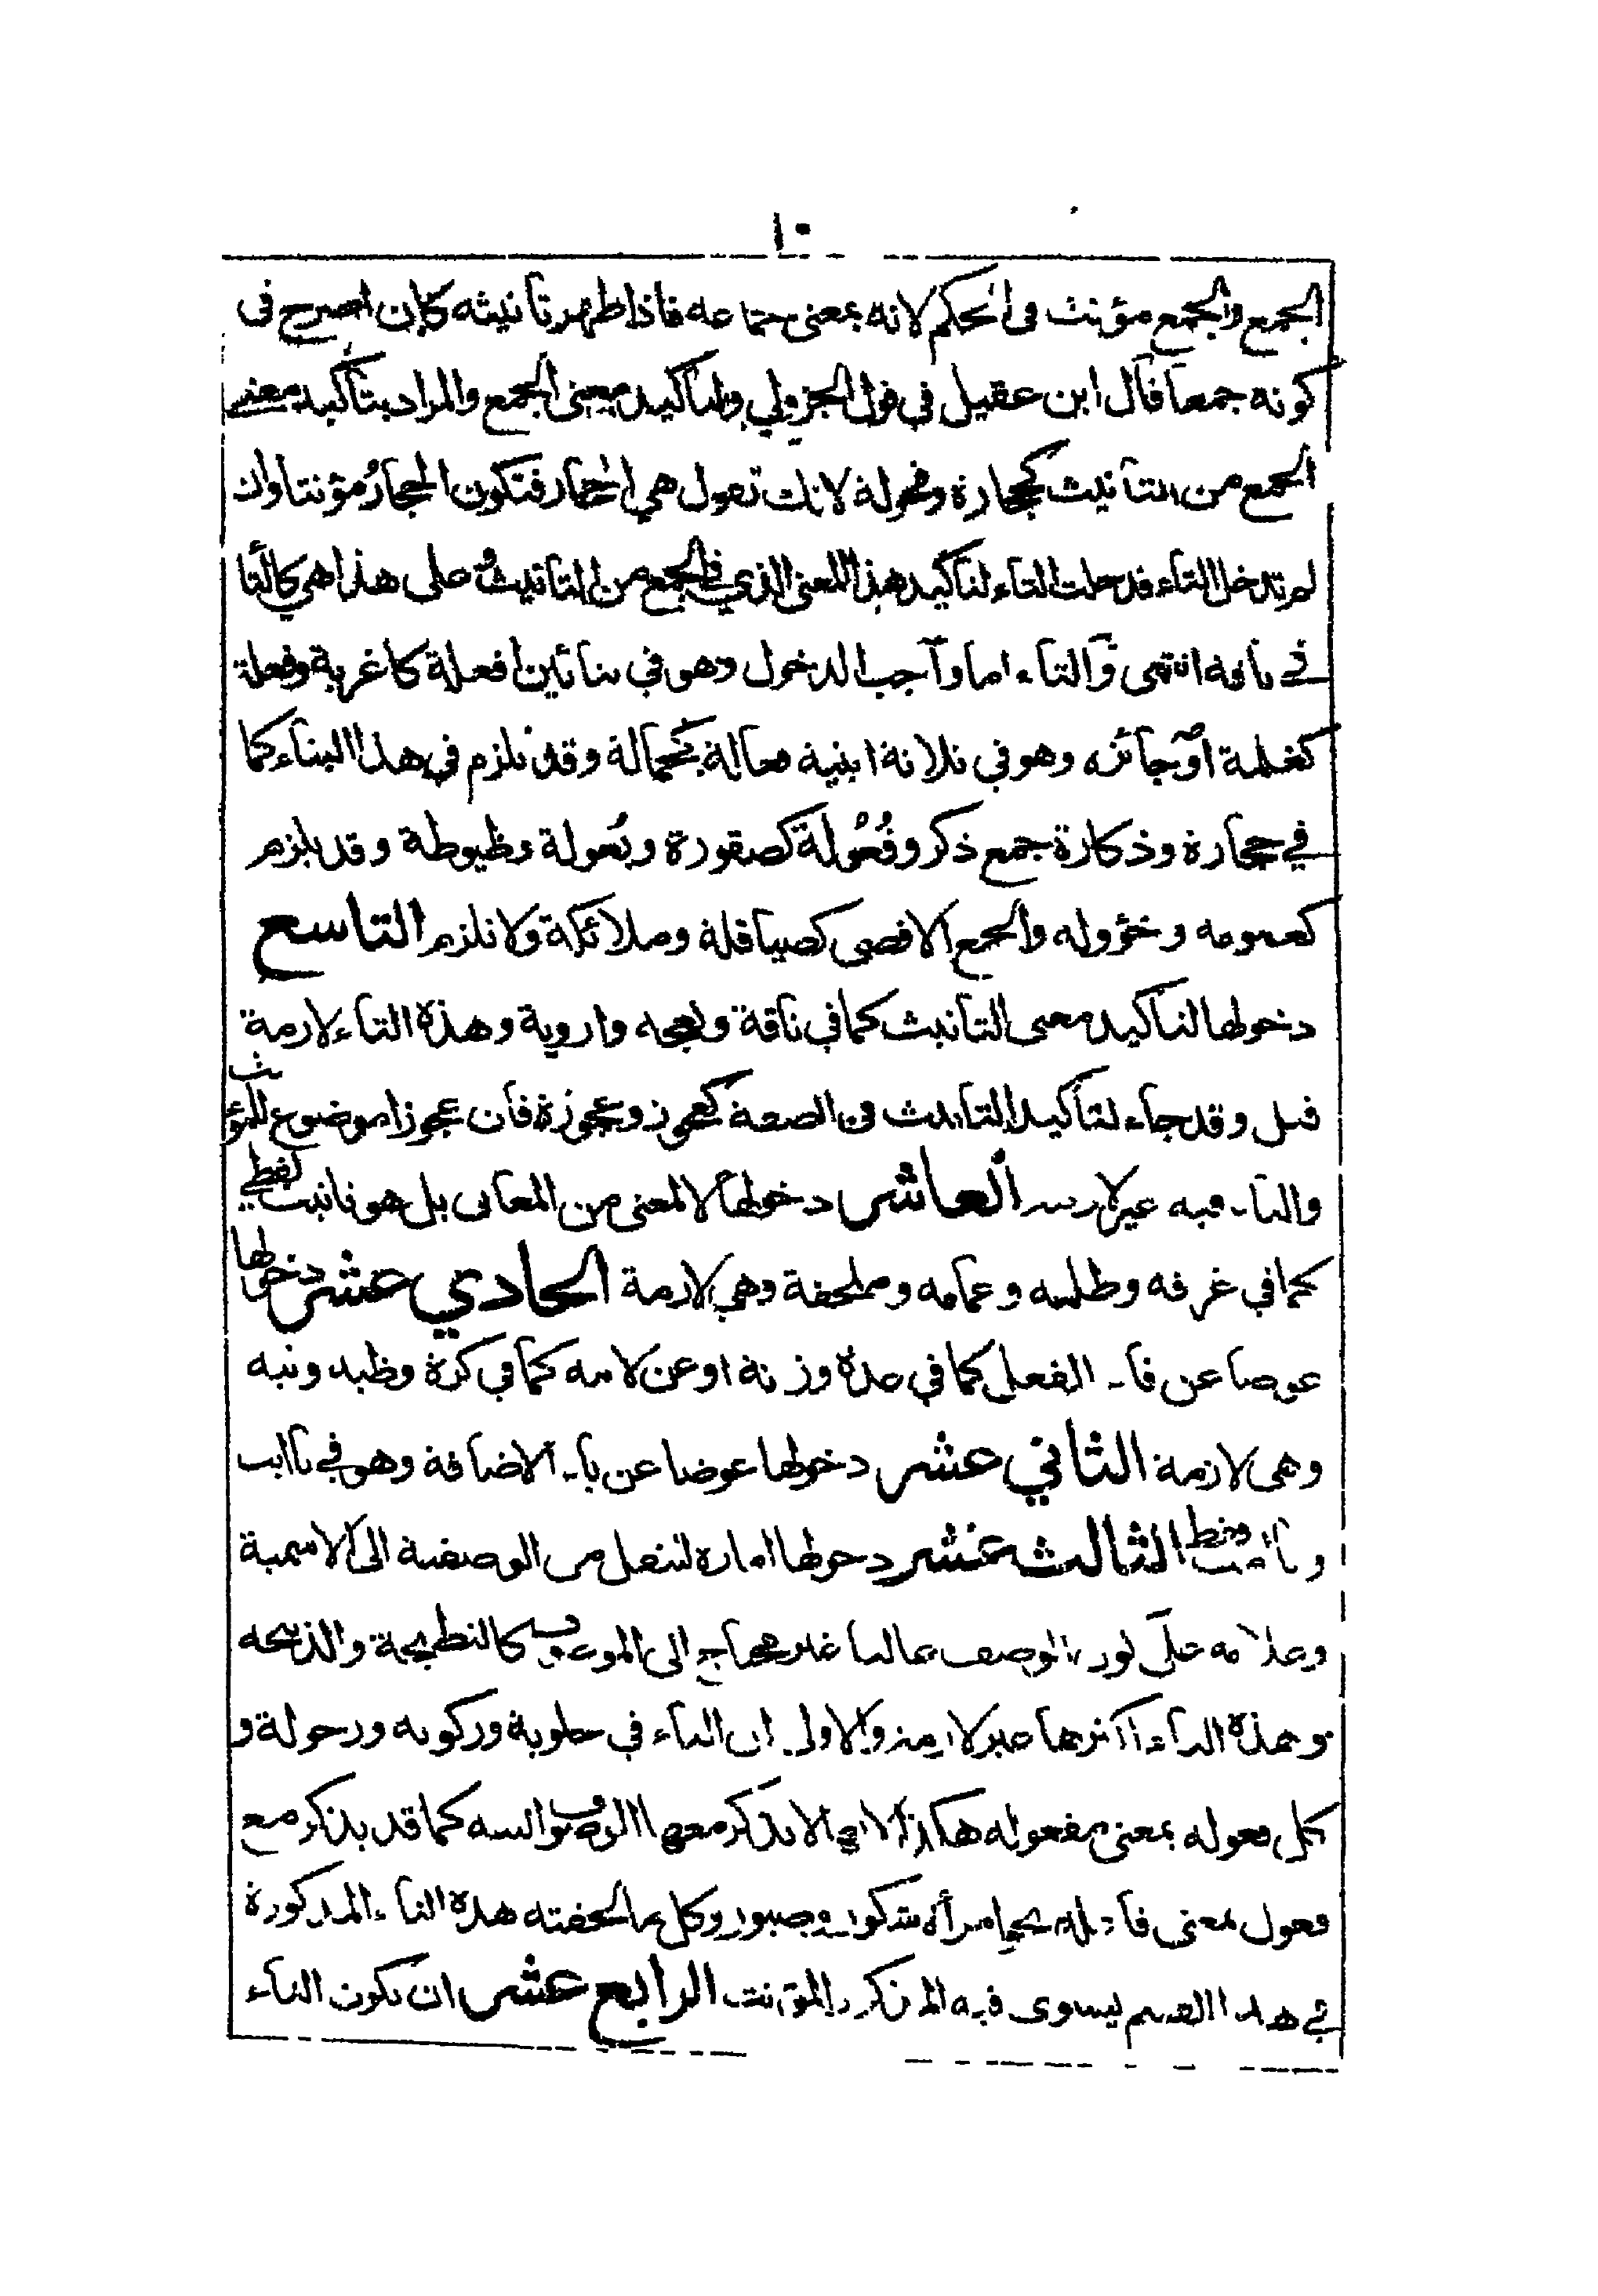 ١٠
الجمع والجمع مؤنث في الحكم لانه بمعنى جماعة فاذا ظهر تانيثه كان اصرح في
كونه جمعا قال ابن عقيل في قول الجزولي ولتاكيد معنى الجمع والمراد بتاكيد معنى
الجمع من التانيث كحجارة وفحولة لانك تقول هي الحجار فتكون الحجارُ مؤنثا وان
لم تدخل التاء فدخلت التاء لتاكيد هذا المعنى الذي في الجمع من التانيث فعلى هذا هي كالتا
في ناقة انتهى والتاء اما واجب الدخول وهو في بنائين افعلة كاغربة وفعلة
كغلمة او جائزه وهو في ثلاثة ابنية فعالة كجمالة وقد تلزم في هذا البناء كما
في حجارة وذكارة جمع ذكر وفُعُولة كصقورة وبُعولة وخيوطة وقد يلزم
كعمومه وخؤوله والجمع الاقصى كصياقلة وملائكة ولا تلزم التاسع
دخولها لتاكيد معنى التانيث كما في ناقة ونعجه واروية وهذه التاء لازمة
قيل وقد جاء لتاكيد التانيث في الصفة كعجوز وعجوزة فان عجوزا موضوع للمؤنث
والتاء فيه غير لازمه العاشر دخولها لا لمعنى من المعاني بل هو تانيث لفظي
كما في غرفه وظلمه وعمامه وملحفة وهي لازمة الحادي عشر دخولها
عوضا عن فاء الفعل كما في عدة وزنة او عن لامه كما في كرة وظبه وثبه
وهي لازمة الثاني عشر دخولها عوضا عن ياء الاضافة وهو في ياابت
وياامت فقط الثالث عشر دخولها امارة للنقل من الوصفية الى الاسمية
وعلامه على كون الوصف غالبا غير محتاج الى الموصوف كالنطيحة والذبيحه
وهذه التاء اكثرها غير لازمة والاولى ان التاء في حلوبة وركوبه ورحولة و
كل فعوله بمعنى مفعوله هكذا لانه لا يذكر معها الموصوف البته كما قد يذكر مع
فعول بمعنى فاعله كامرأة شكور وصبور وكل ما لحقته هذه التاء المذكورة
في هذا القسم يستوى فيه المذكر والمؤنث الرابع عشر ان تكون التاء